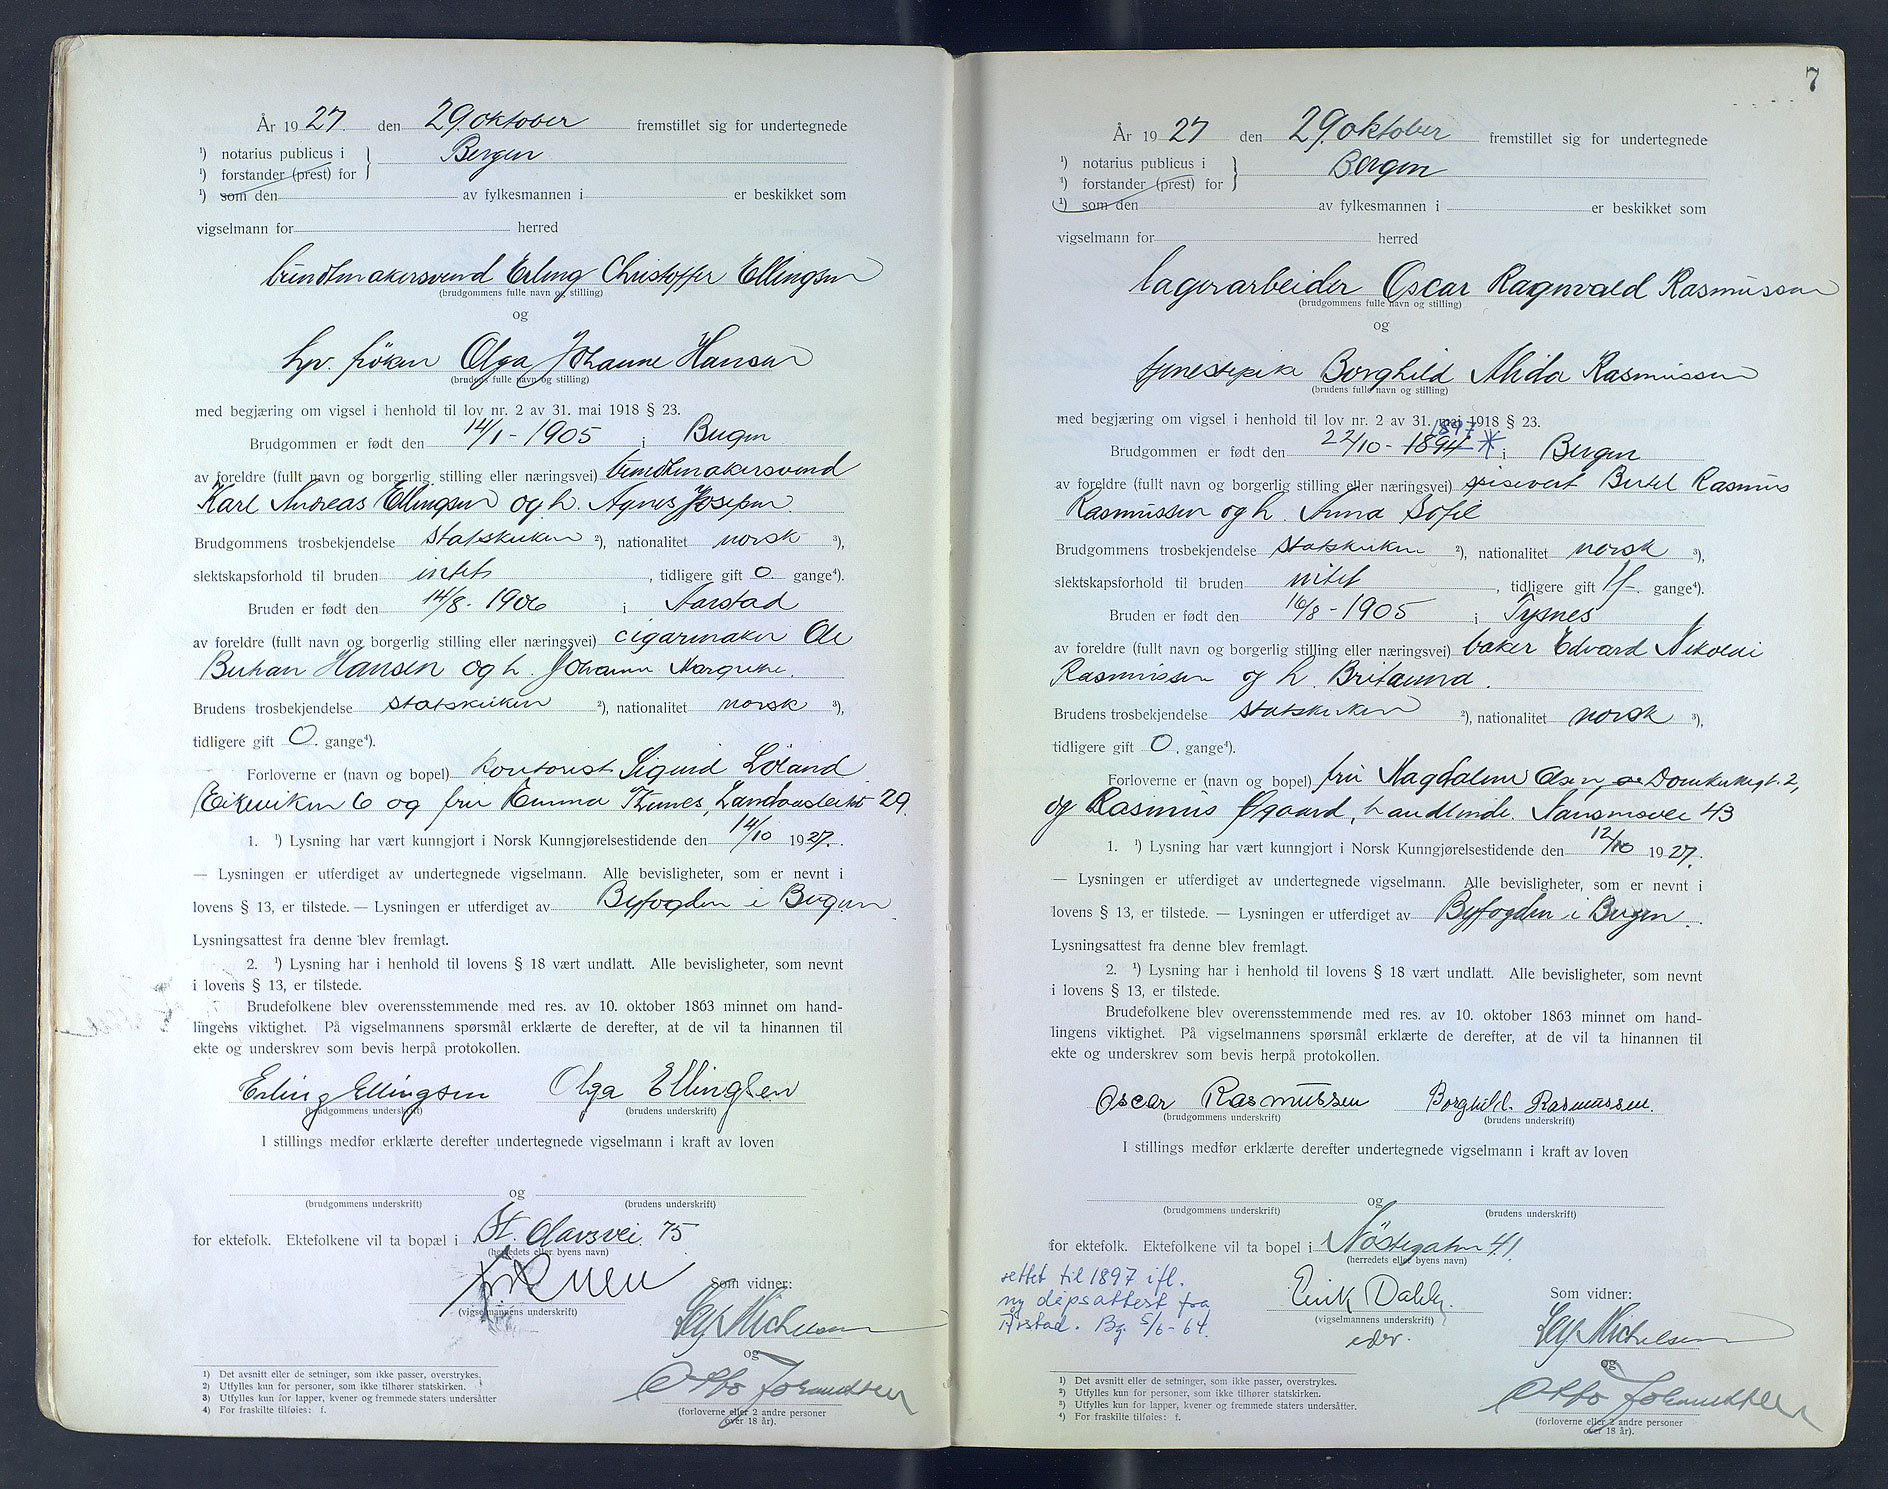 År 1927. den 29. oktober fremstillet sig for undertegnede
¹) notarius publicus i } Bergen
¹) forstander (prest) for
¹) som den av fylkesmannen i er beskikket som
vigselmann for herred
bundtmakersvend Erling Christoffer Ellingsen
(brudgommens fulle navn og stilling)
og
hv. frøken Olga Johanne Hansen
(brudens fulle navn og stilling)
med begjæring om vigsel i henhold til lov nr. 2 av 31. mai 1918 § 23.
Brudgommen er født den 14/1 - 1905 i Bergen
av foreldre (fullt navn og borgerlig stilling eller næringsvei) bundtmakersvend
Karl Andreas Ellingsen og h. Agnes Josefsen.
Brudgommens trosbekjendelse statskirken ²), nationalitet norsk ³),
slektskapsforhold til bruden intet, tidligere gift 0 gange⁴).
Bruden er født den 14/8 - 1906 i Aarstad
av foreldre (fullt navn og borgerlig stilling eller næringsvei) cigarmaker Ole
Hansen og h. Johanne Margrethe.
Brudens trosbekjendelse statskirken ²), nationalitet norsk ³),
tidligere gift 0. gange⁴).
Forloverne er (navn og bopel) kontorist Sigurd Løland
Eikeviken 6 og fru Emma Thunes, 29.
1. ¹) Lysning har vært kunngjort i Norsk Kunngjørelsestidende den 14/10 1927.
— Lysningen er utferdiget av undertegnede vigselmann. Alle bevisligheter, som er nevnt i
lovens § 13, er tilstede. — Lysningen er utferdiget av Byfogden i Bergen.
Lysningsattest fra denne blev fremlagt.
2. ¹) Lysning har i henhold til lovens § 18 vært undlatt. Alle bevisligheter, som nevnt
i lovens § 13, er tilstede.
Brudefolkene blev overensstemmende med res. av 10. oktober 1863 minnet om hand-
lingens viktighet. På vigselmannens spørsmål erklærte de derefter, at de vil ta hinannen til
ekte og underskrev som bevis herpå protokollen.
Erling Ellingsen Olga Ellingsen
(brudgommens underskrift) (brudens underskrift)
I stillings medfør erklærte derefter undertegnede vigselmann i kraft av loven
og
(brudgommens underskrift) (brudens underskrift)
for ektefolk. Ektefolkene vil ta bopæl i St. Olavsvei 75
(herredets eller byens navn)
(vigselmannens underskrift)
Som vidner:
Leif Michelsen
og
Otto Johanessen
(forloverne eller 2 andre personer
over 18 år).
1) Det avsnitt eller de setninger, som ikke passer, overstrykes.
2) Utfylles kun for personer, som ikke tilhører statskirken.
3) Utfylles kun for lapper, kvener og fremmede staters undersåtter
4) For fraskilte tilføies: f.
7
År 1927 den 29. oktober fremstillet sig for undertegnede
¹) notarius publicus i } Bergen
¹) forstander (prest) for
¹) som den av fylkesmannen i er beskikket som
vigselmann for herred
lagerarbeider Oscar Ragnvald Rasmussen
(brudgommens fulle navn og stilling)
og
tjenestepike Borghild Alida Rasmussen
(brudens fulle navn og stilling)
med begjæring om vigsel i henhold til lov nr. 2 av 31. mai 1918 § 23.
1897
Brudgommen er født den 22/10 - 1894 * i Bergen
av foreldre (fullt navn og borgerlig stilling eller næringsvei) spisevert Bertel Rasmus
Rasmussen og h. Anna Sofie
Brudgommens trosbekjendelse statskirken ²), nationalitet norsk ³),
slektskapsforhold til bruden intet, tidligere gift 1f. gange⁴).
Bruden er født den 16/8 - 1905 i Tysnes
av foreldre (fullt navn og borgerlig stilling eller næringsvei) baker Edvard Nikolai
Rasmussen og h. Britanna.
Brudens trosbekjendelse statskirken ²), nationalitet norsk ³),
tidligere gift 0. gange⁴).
Forloverne er (navn og bopel) fru Magdalene Olsen Domkirkegt. 2,
og Rasmus Øgaard, handlende. Nansensvei 43
1. ¹) Lysning har vært kunngjort i Norsk Kunngjørelsestidende den 12/10 1927.
— Lysningen er utferdiget av undertegnede vigselmann. Alle bevisligheter, som er nevnt i
lovens § 13, er tilstede. — Lysningen er utferdiget av Byfogden i Bergen.
Lysningsattest fra denne blev fremlagt.
2. ¹) Lysning har i henhold til lovens § 18 vært undlatt. Alle bevisligheter, som nevnt
i lovens § 13, er tilstede.
Brudefolkene blev overensstemmende med res. av 10. oktober 1863 minnet om hand-
lingens viktighet. På vigselmannens spørsmål erklærte de derefter, at de vil ta hinannen til
ekte og underskrev som bevis herpå protokollen.
Oscar Rasmussen Borghild. Rasmussen.
(brudgommens underskrift) (brudens underskrift)
I stillings medfør erklærte derefter undertegnede vigselmann i kraft av loven
og
(brudgommens underskrift) (brudens underskrift)
for ektefolk. Ektefolkene vil ta bopel i Nöstegaten 41
(herredets eller byens navn)
rettet til 1897 ifl.
ny dåpsattest fra
Årstad. Bg. 5/6-64.
Eirik Dahle.
(vigselmannens underskrift)
edsv.
Som vidner:
Leif Michelsen
og
Otto Johanessen
(forloverne eller 2 andre personer
over 18 år).
¹) Det avsnitt eller de setninger, som ikke passer, overstrykes.
²) Utfylles kun for personer, som ikke tilhører statskirken.
³) Utfylles kun for lapper, kvener og fremmede staters undersåtter.
⁴) For fraskilte tilføies: f.